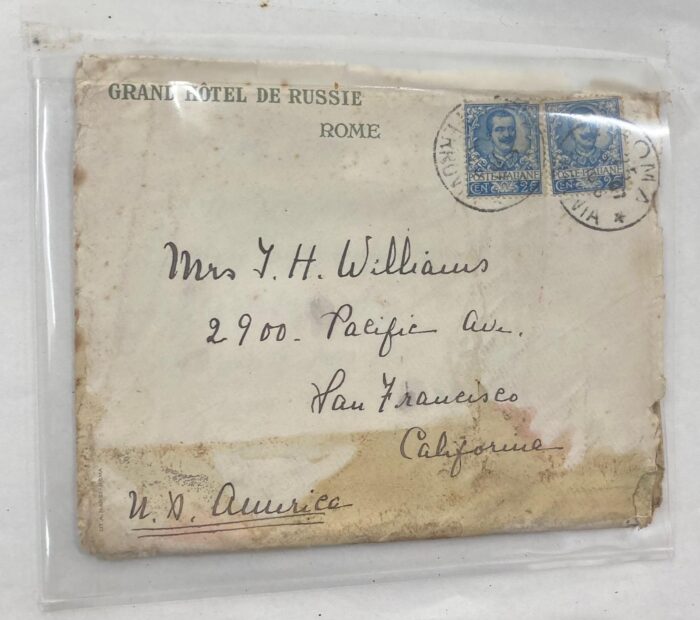 GRAND HÔTEL DE RUSSIE
ROME
POSTE ITALIANE
CEN 25
POSTE ITALIANE
CEN 25
ROMA
Mrs T. H. Williams
2900 - Pacific Ave.
San Francisco
California
U. S. America